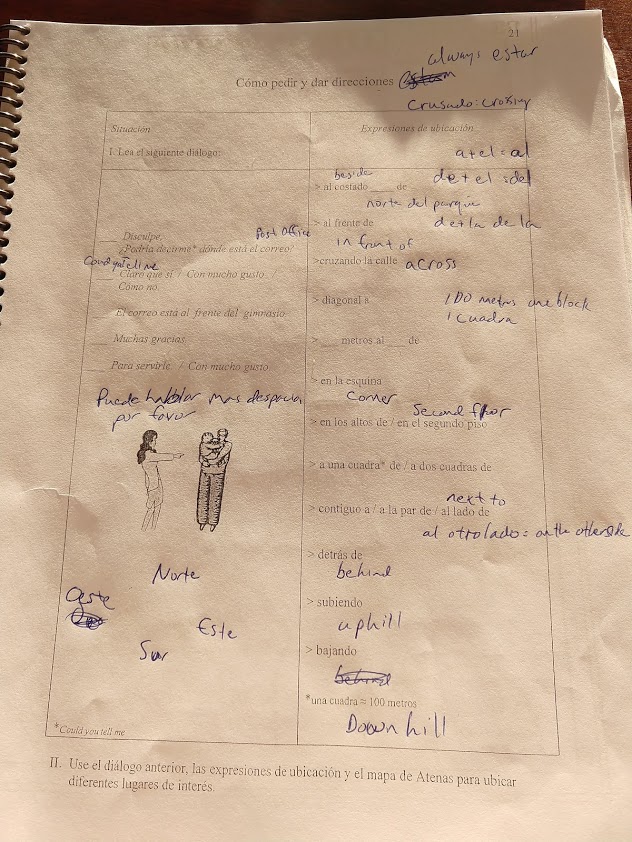 21
always estar
Cómo pedir y dar direcciones
Crusado: crossing
Situación
Expresiones de ubicación
I. Lea el siguiente diálogo:
a + el = al
beside
> al costado ____ de
de + el = del
norte del parque
> al frente de
de + la de la
Post Office
___ Disculpe.
¿Podría decirme* dónde está el correo?
in front of
>cruzando la calle
across
Claro que sí / Con mucho gusto /
Cómo no.
> diagonal a
100 metros one block
1 cuadra
El correo está al frente del gimnasio.
___ Muchas gracias.
> ___ metros al ___ de
Para servirle. / Con mucho gusto.
> en la esquina
Corner
Puede hablar mas despacia
por favor
Second floor
> en los altos de / en el segundo piso
> a una cuadra* de / a dos cuadras de
next to
> contiguo a / a la par de / al lado de
al otro lado = on the otherside
> detrás de
behind
Norte
> subiendo
Oeste
uphill
Este
Sur
> bajando
behind
*una cuadra ≈ 100 metros
Down hill
*Could you tell me
II. Use el diálogo anterior, las expresiones de ubicación y el mapa de Atenas para ubicar
diferentes lugares de interés.